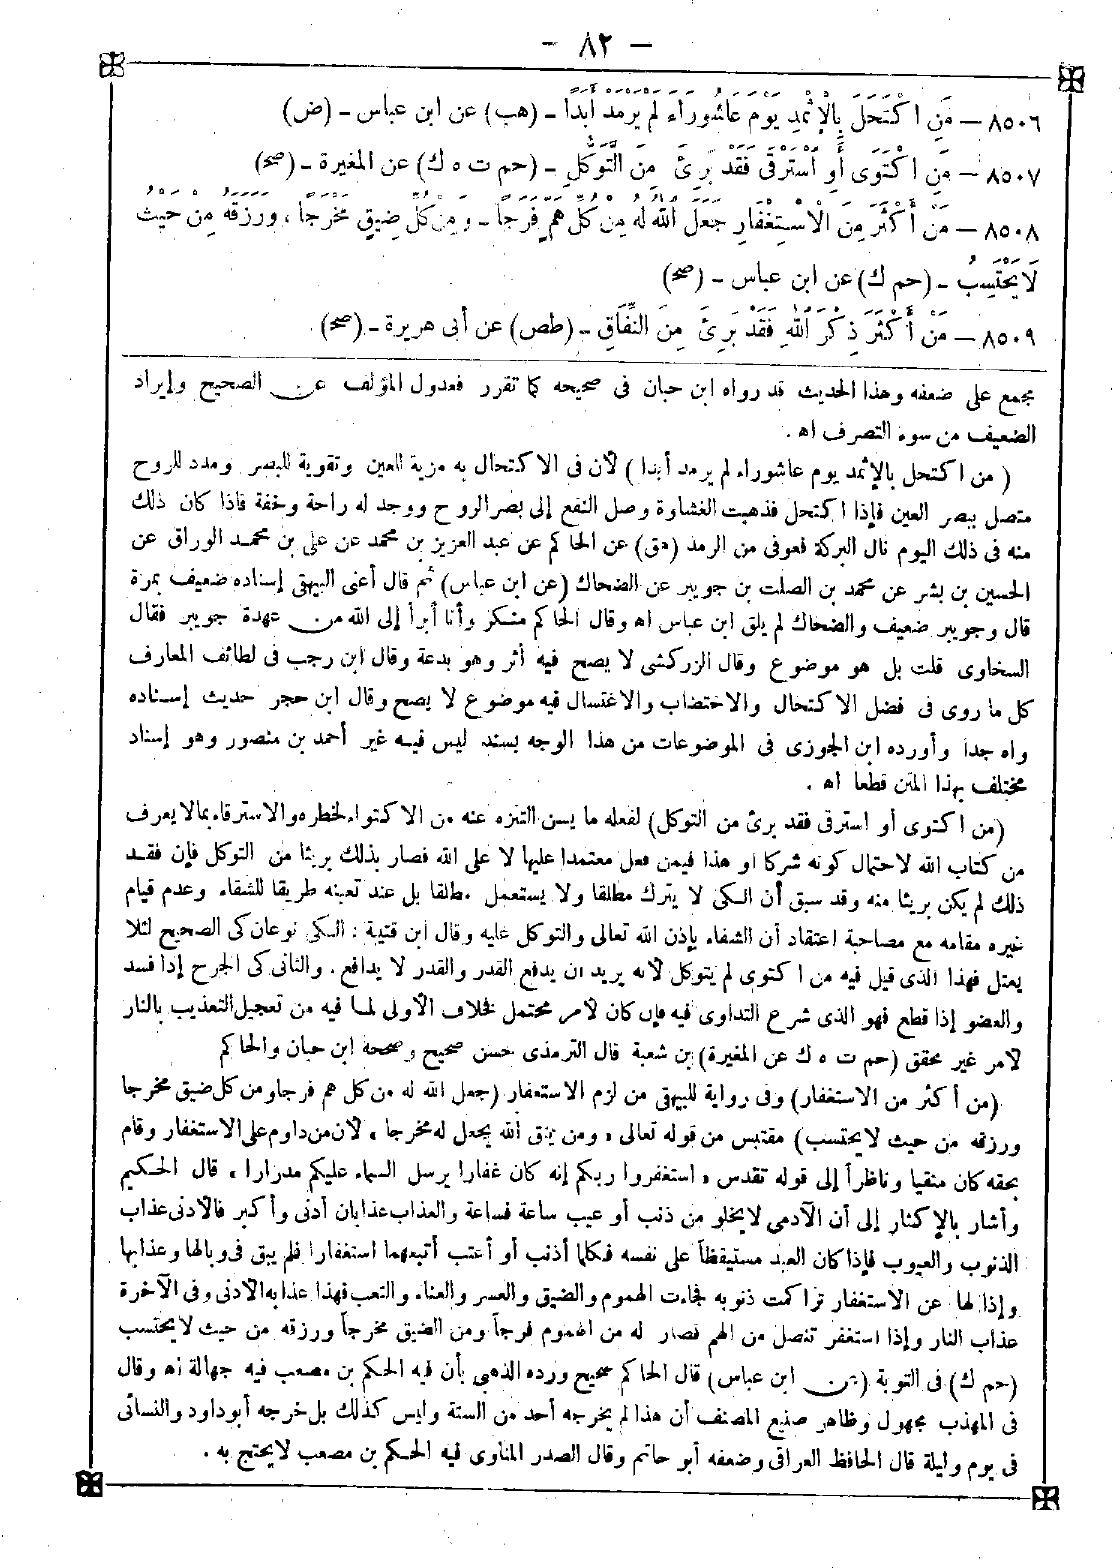 - ٨٢ -
٨٥٠٦ - مَنِ اكْتَحَلَ بِالْإِثْمِدِ يَوْمَ عَاشُورَاءَ لَمْ يَرْمَدْ أَبَدًا - (هب) عن ابن عباس - (ض)
٨٥٠٧ - مَنِ اكْتَوَى أَوِ اسْتَرْقَى فَقَدْ بَرِئَ مِنَ التَّوَكُّلِ - (حم ت ه ك) عن المغيرة - (صح)
٨٥٠٨ - مَنْ أَكْثَرَ مِنَ الْاسْتِغْفَارِ جَعَلَ اللهُ لَهُ مِنْ كُلِّ هَمٍّ فَرَجًا - وَمِنْ كُلِّ ضِيقٍ مَخْرَجًا ، وَرَزَقَهُ مِنْ حَيْثُ
لَا يَحْتَسِبُ - (حم ك) عن ابن عباس - (صح)
٨٥٠٩ - مَنْ أَكْثَرَ ذِكْرَ اللهِ فَقَدْ بَرِئَ مِنَ النِّفَاقِ - (طص) عن أبى هريرة - (صح)
مجمع على ضعفه وهذا الحديث قد رواه ابن حبان فى صحيحه كما تقرر فعدول المؤلف عن الصحيح وإيراد
الضعيف من سوء التصرف اه .
( من اكتحل بالإثمد يوم عاشوراء لم يرمد أبدا ) لأن فى الاكتحال به مزية للعين وتقوية للبصر ومدد للروح
متصل ببصر العين فإذا اكتحل فذهبت الغشاوة وصل النفع إلى بصر الروح ووجد له راحة وخفة فاذا كان ذلك
منه فى ذلك اليوم نال البركة فعوفى من الرمد (هق) عن الحاكم عن عبد العزيز بن محمد عن على بن محمد الوراق عن
الحسين بن بشر عن محمد بن الصلت بن جويبر عن الضحاك (عن ابن عباس) ثم قال أعنى البيهقى إسناده ضعيف بمرة
قال وجويبر ضعيف والضحاك لم يلق ابن عباس اه وقال الحاكم منكر وأنا أبرأ إلى الله من عهدة جويبر فقال
السخاوى قلت بل هو موضوع وقال الزركشى لا يصح فيه أثر وهو بدعة وقال ابن رجب فى لطائف المعارف
كل ما روى فى فضل الاكتحال والاختضاب والاغتسال فيه موضوع لا يصح وقال ابن حجر حديث إسناده
واه جدا وأورده ابن الجوزى فى الموضوعات من هذا الوجه بسند ليس فيه غير أحمد بن منصور وهو إسناد
مختلف بهذا المتن قطعا اه .
(من اكتوى أو استرقى فقد برئ من التوكل) لفعله ما يسن التنزه عنه من الاكتواء لخطره والاسترقاء بما لا يعرف
من كتاب الله لاحتمال كونه شركا او هذا فيمن فعل معتمدا عليها لا على الله فصار بذلك بريئا من التوكل فإن فقد
ذلك لم يكن بريئا منه وقد سبق أن الكى لا يترك مطلقا ولا يستعمل مطلقا بل عند تعينه طريقا للشفاء وعدم قيام
غيره مقامه مع مصاحبة اعتقاد أن الشفاء بإذن الله تعالى والتوكل عليه وقال ابن قتيبة : الكى نوعان كى الصحيح لئلا
يعتل فهذا الذى قيل فيه من اكتوى لم يتوكل لأنه يريد ان يدفع القدر والقدر لا يدافع . والثانى كى الجرح إذا فسد
والعضو إذا قطع فهو الذى شرع التداوى فيه فإن كان لأمر محتمل فخلاف الأولى لما فيه من تعجيل التعذيب بالنار
لأمر غير محقق (حم ت ه ك عن المغيرة) بن شعبة قال الترمذى حسن صحيح وصححه ابن حبان والحاكم
(من أكثر من الاستغفار) وفى رواية للبيهقى من لزم الاستغفار (جعل الله له من كل هم فرجا ومن كل ضيق مخرجا
ورزقه من حيث لا يحتسب) مقتبس من قوله تعالى « ومن يتق الله يجعل له مخرجا » لأن من داوم على الاستغفار وقام
بحقه كان متقيا وناظرا إلى قوله تقدس « استغفروا ربكم إنه كان غفارا يرسل السماء عليكم مدرارا » قال الحكيم
وأشار بالإكثار إلى أن الآدمى لا يخلو من ذنب أو عيب ساعة فساعة والعذاب عذابان أدنى وأكبر فالأدنى عذاب
الذنوب والعيوب فإذا كان العبد مستيقظا على نفسه فكلما أذنب أو أعتب أتبعهما استغفارا فلم يبق فى وبالها وعذابها
وإذا لها عن الاستغفار تراكمت ذنوبه فجاءت الهموم والضيق والعسر والعناء والتعب فهذا عذابه الأدنى وفى الآخرة
عذاب النار وإذا استغفر تنصل من الهم فصار له من الهموم فرجا ومن الضيق مخرجا ورزقه من حيث لا يحتسب
(حم ك) فى التوبة (عن ابن عباس) قال الحاكم صحيح ورده الذهبى بأن فيه الحكم بن مصعب فيه جهالة اه وقال
فى المهذب مجهول وظاهر صنيع المصنف أن هذا لم يخرجه أحد من الستة وليس كذلك بل خرجه أبو داود والنسائى
فى يوم وليلة قال الحافظ العراقى وضعفه أبو حاتم وقال الصدر المناوى فيه الحكم بن مصعب لا يحتج به .